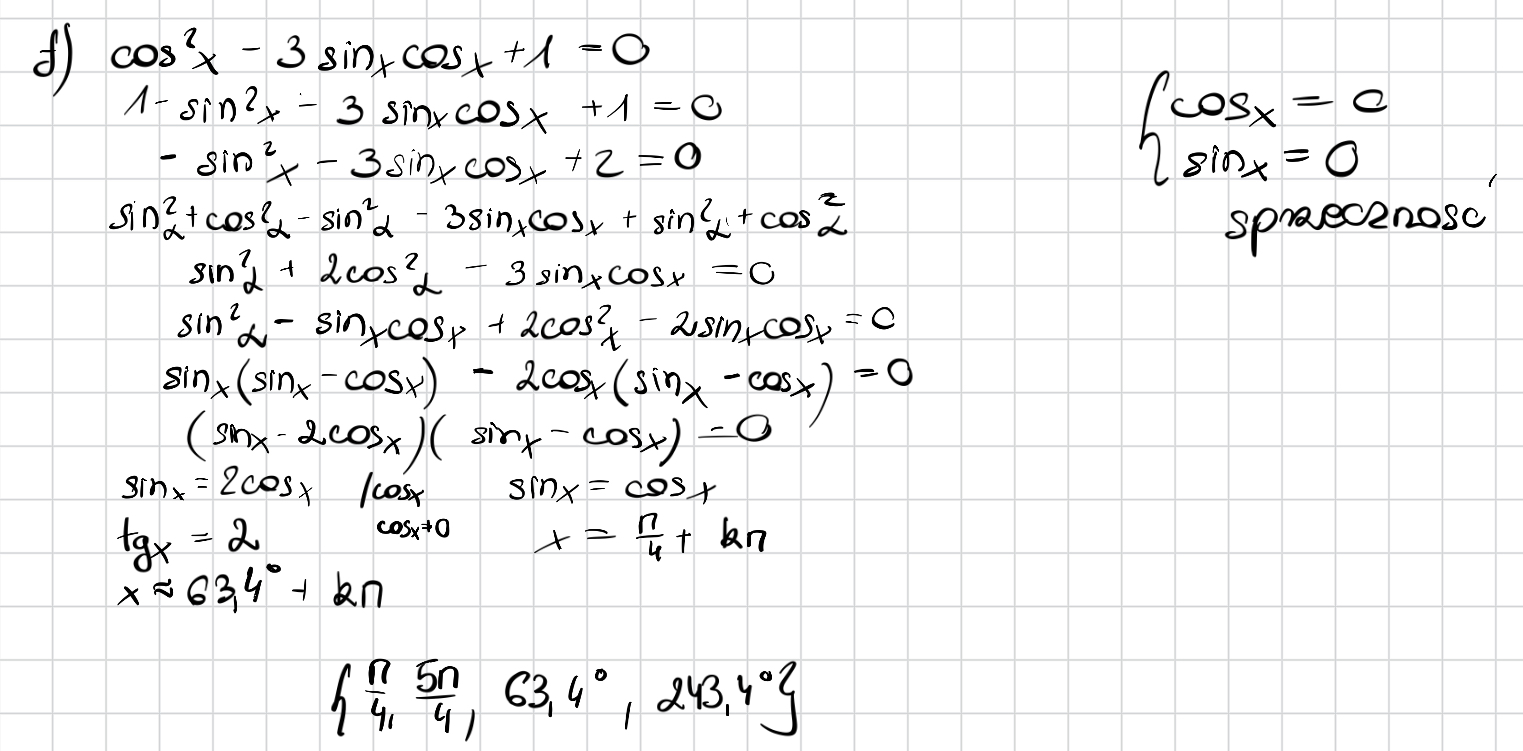 f) cos²x - 3 sinx cosx + 1 = 0
1 - sin²x - 3 sinx cosx + 1 = 0
- sin²x - 3 sinx cosx + 2 = 0
sin²α + cos²α - sin²α - 3sinx cosx + sin²α + cos²α
sin²α + 2cos²α - 3 sinx cosx = 0
sin²α - sinx cosx + 2cos²x - 2sinx cosx = 0
sinx (sinx - cosx) - 2cosx (sinx - cosx) = 0
(sinx - 2cosx)(sinx - cosx) = 0
sinx = 2cosx /cosx sinx = cosx
cosx≠0
tgx = 2 x = π/4 + kπ
x ≈ 63,4° + kπ
{π/4, 5π/4, 63,4°, 243,4°}
{ cosx = 0
sinx = 0
sprzeczność